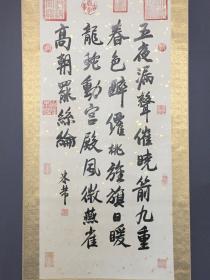 五夜漏聲催曉箭九重
春色醉僊桃旌旗日暖
龍蛇動宮殿風微燕雀
高朝罷絲綸
米芾